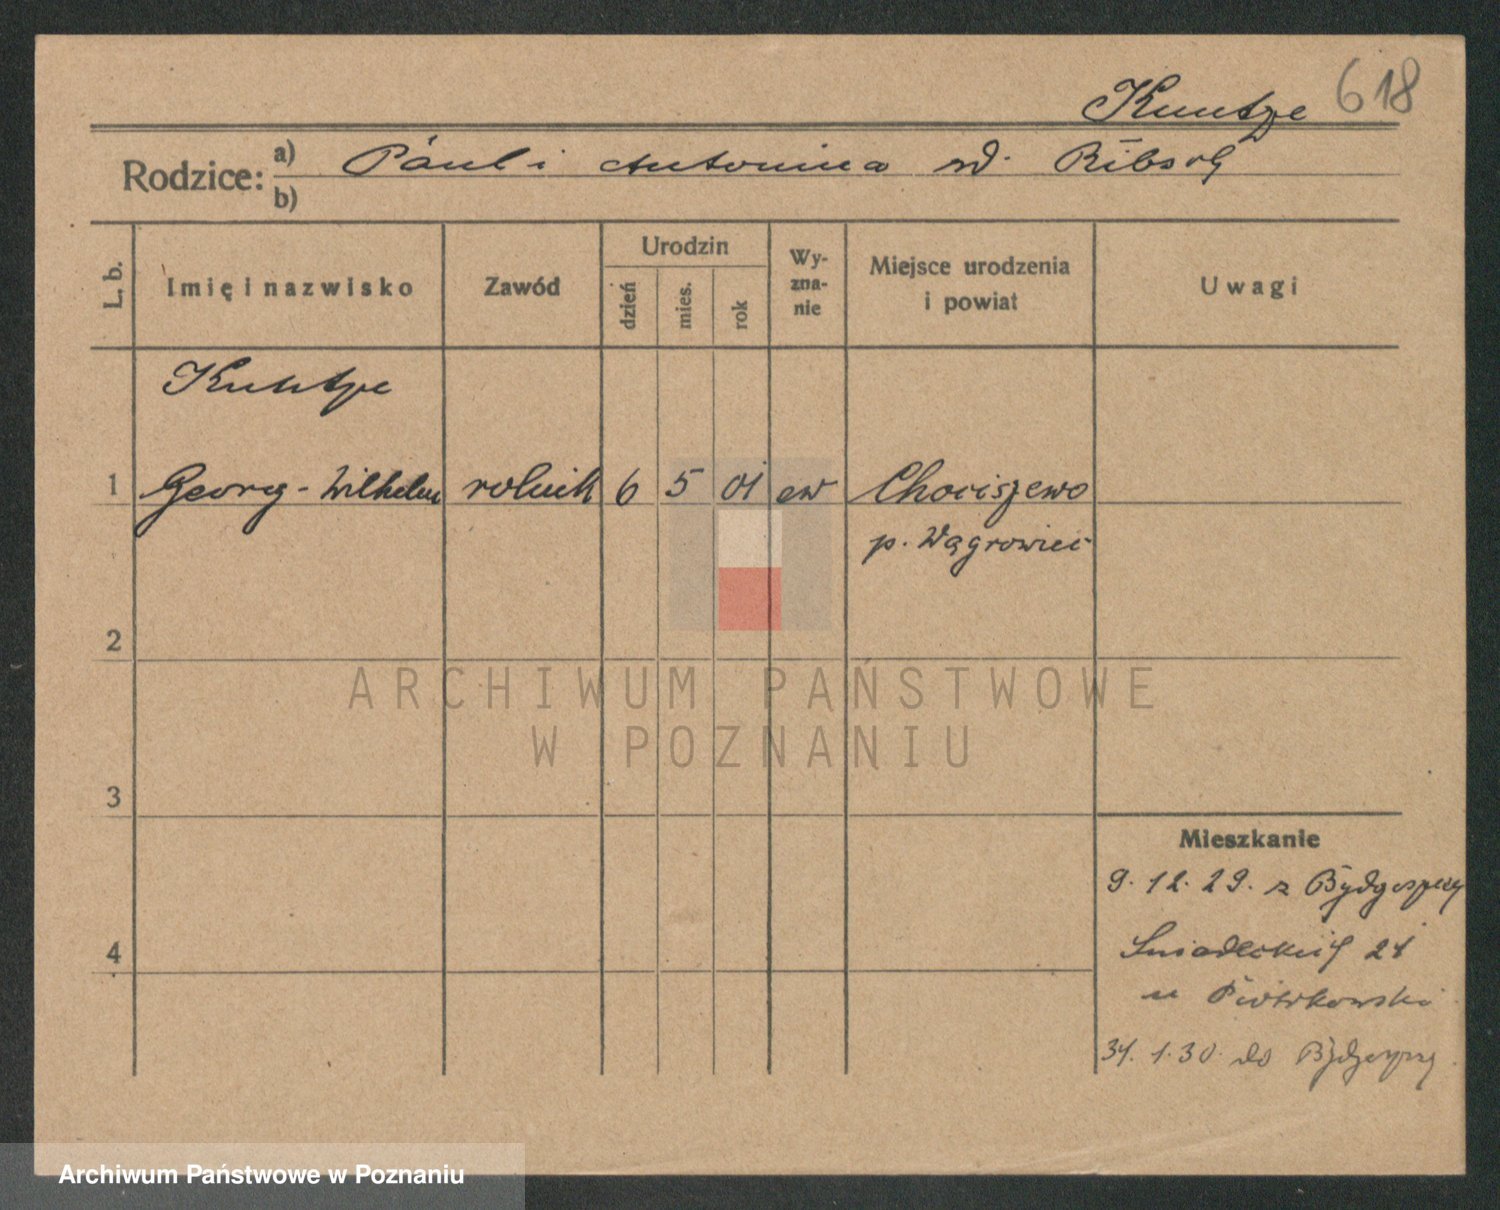 Kuntze 618
Rodzice: a) Paul i Antonina
b)
L. b.
Imię i nazwisko
Zawód
Urodzin
dzień
mies.
rok
Wy-
zna-
nie
Miejsce urodzenia
i powiat
Uwagi
Kuntze
1 Georg - Wilhelm rolnik 6 5 01 ew Chociszewo
p. Wągrowiec
2
ARCHIWUM PAŃSTWOWE
W POZNANIU
3
Mieszkanie
9. 12. 29. z Bydgoszczy
Śniadeckich
4
u Piotrkowski
31. 1. 30. do Bydgoszczy
Archiwum Państwowe w Poznaniu